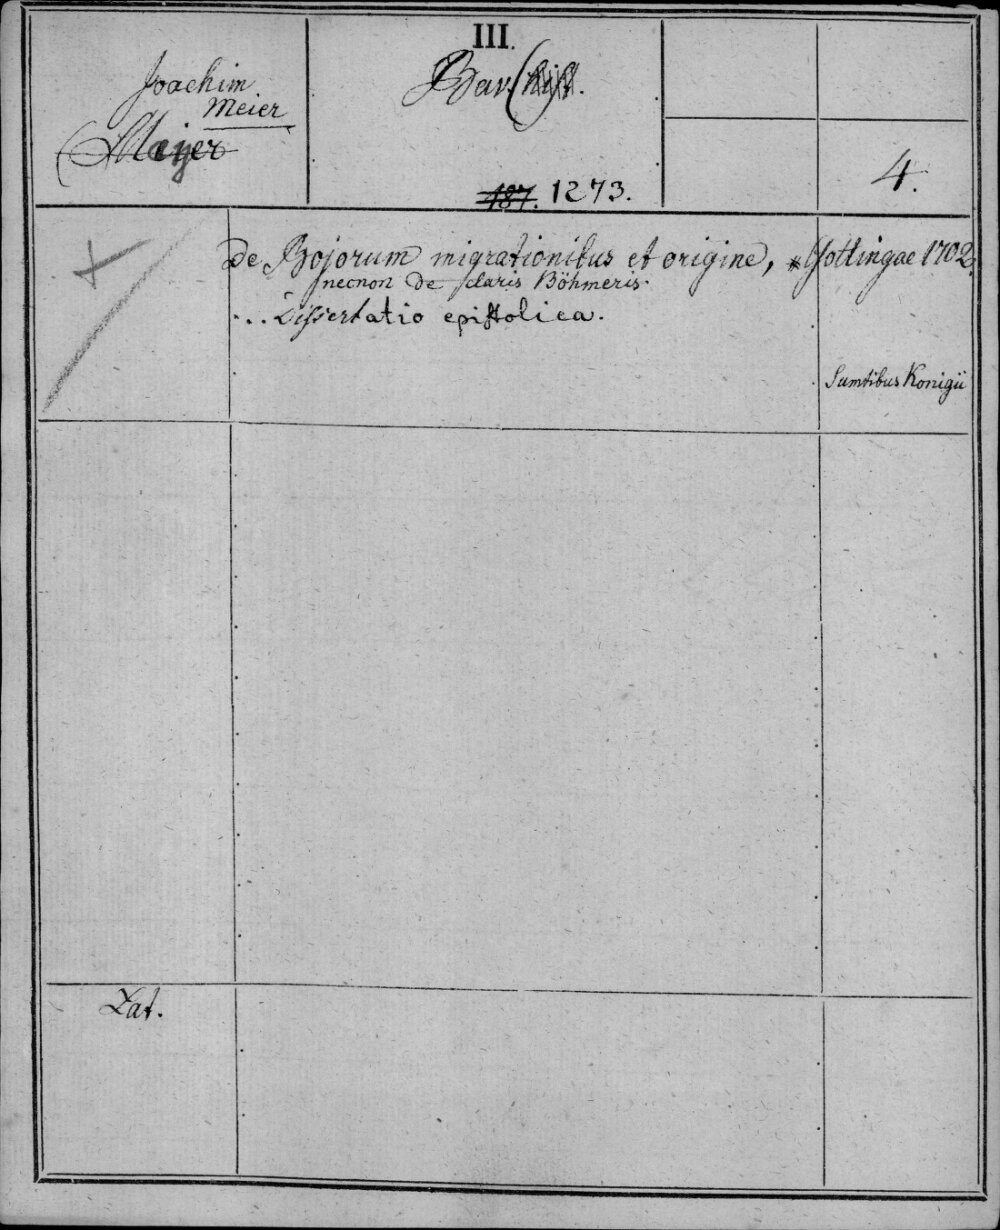 III.
Joachim
Meier
(Meyer
Bav.
187. 1273.
4.
de Bojorum migrationibus et origine,
necnon de claris Böhmeris.
... Dissertatio epistolica.
Gottingae 1702.
Sumtibus Konigii
Lat.